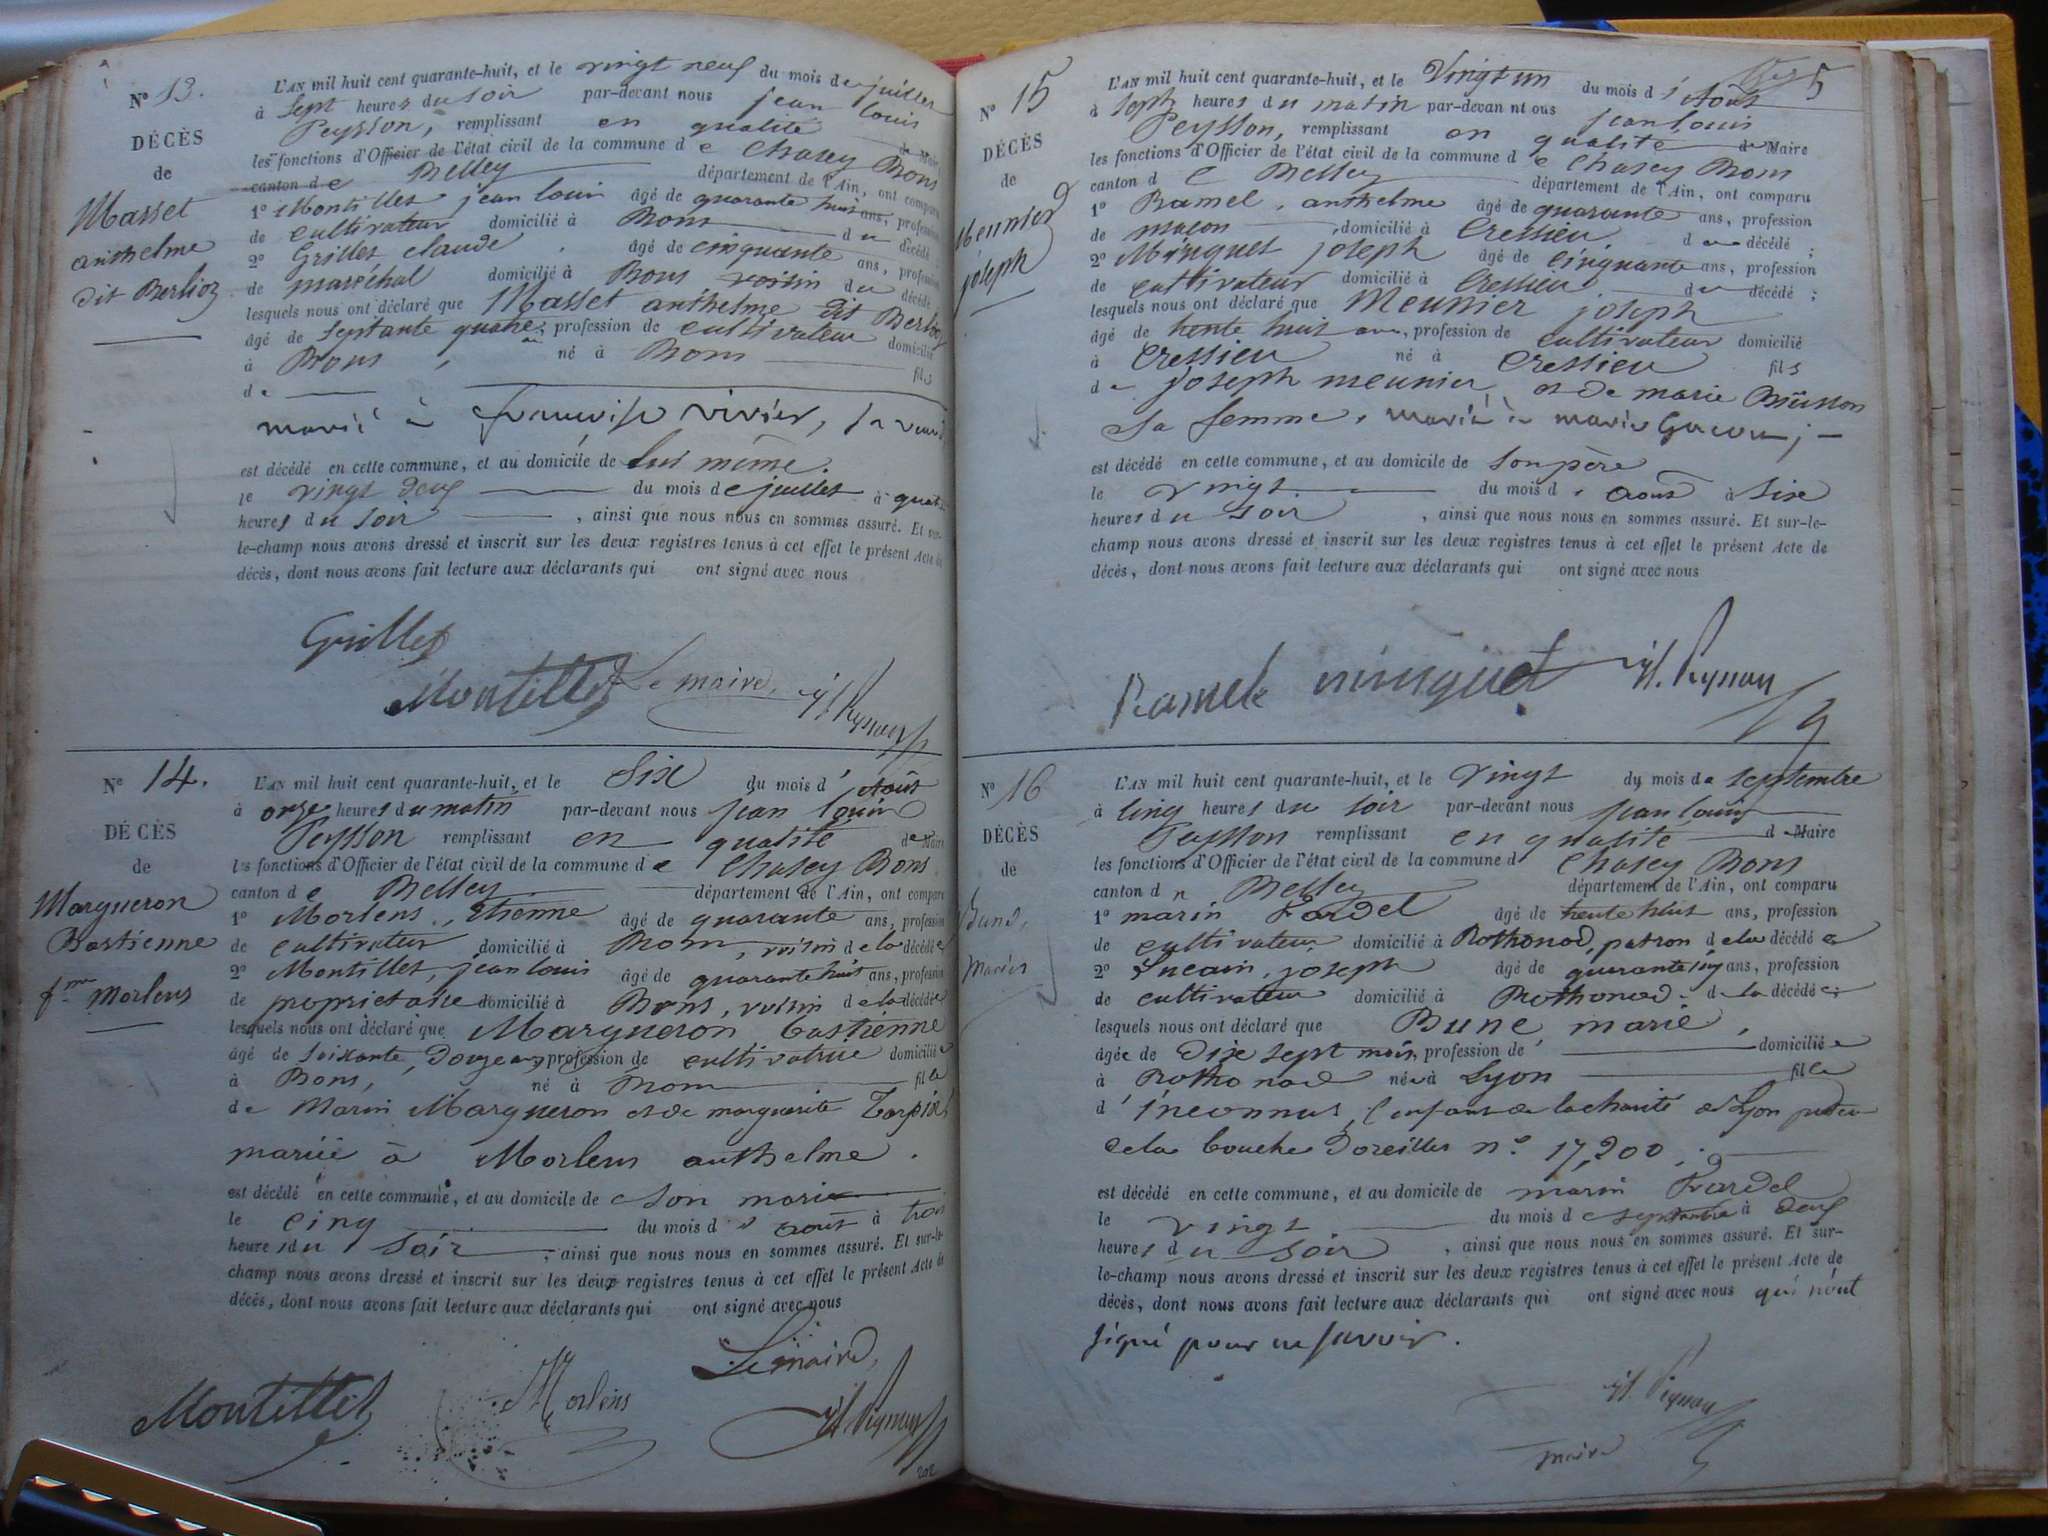 N° 13.
DÉCÈS
de
Masset
anthelme
dit Berlioz
L'AN mil huit cent quarante-huit, et le vingt neuf du mois de juillet
à Sept heures du soir par-devant nous jean louis
Peysson, remplissant en qualité de Maire
les fonctions d'Officier de l'état civil de la commune de Chazey Bons
canton de Belley département de l'Ain, ont comparu
1° Montillet jean louis âgé de quarante huit ans, profession
de cultivateur domicilié à Bons du décédé
2° Grillet claude âgé de cinquante ans, profession
de maréchal domicilié à Bons voisin du décédé
lesquels nous ont déclaré que Masset anthelme dit Berlioz
âgé de septante quatre, profession de cultivateur domicilié
à Bons, né à Bons fils
de
marié à françoise vivier, sa veuve
est décédé en cette commune, et au domicile de lui même.
le vingt deux du mois de juillet à quatre
heures du soir, ainsi que nous nous en sommes assuré. Et sur-
le-champ nous avons dressé et inscrit sur les deux registres tenus à cet effet le présent Acte de
décès, dont nous avons fait lecture aux déclarants qui ont signé avec nous
Grillet
Montillet Le maire,
N° 14.
DÉCÈS
de
Margueron
Bastienne
fme Morlens
L'AN mil huit cent quarante-huit, et le Six du mois d'Août
à onze heures du matin par-devant nous jean louis
Peysson remplissant en qualité de Maire
les fonctions d'Officier de l'état civil de la commune de Chazey Bons
canton de Belley département de l'Ain, ont comparu
1° Morlens, Etienne âgé de quarante ans, profession
de cultivateur domicilié à Bons, voisin de la décédée
2° Montillet, jean louis âgé de quarante huit ans, profession
de propriétaire domicilié à Bons, voisin de la décédée
lesquels nous ont déclaré que Margueron bastienne
âgé de soixante douze ans, profession de cultivatrice domiciliée
à Bons, né à Bons fille
de Marin Margueron et de marguerite
mariée à Morlens anthelme.
est décédé en cette commune, et au domicile de son mari
le cinq du mois d'août à trois
heures du soir, ainsi que nous nous en sommes assuré. Et sur-le-
champ nous avons dressé et inscrit sur les deux registres tenus à cet effet le présent Acte de
décès, dont nous avons fait lecture aux déclarants qui ont signé avec nous
Montillet Morlens Le maire,
202
5
N° 15
DÉCÈS
de
Meunier
joseph
L'AN mil huit cent quarante-huit, et le Vingt un du mois d'Août
à Sept heures du matin par-devant nous jean louis
Peysson, remplissant en qualité de Maire
les fonctions d'Officier de l'état civil de la commune de Chazey Bons
canton de Belley département de l'Ain, ont comparu
1° Ramel, anthelme âgé de quarante ans, profession
de maçon domicilié à Cressieu du décédé;
2° Minguet joseph âgé de cinquante ans, profession
de cultivateur domicilié à Cressieu du décédé;
lesquels nous ont déclaré que Meunier joseph
âgé de trente huit ans, profession de cultivateur domicilié
à Cressieu né à Cressieu fils
de joseph meunier et de marie
sa femme, marié à marie
est décédé en cette commune, et au domicile de son père
le vingt du mois d'août à six
heures du soir, ainsi que nous nous en sommes assuré. Et sur-le-
champ nous avons dressé et inscrit sur les deux registres tenus à cet effet le présent Acte de
décès, dont nous avons fait lecture aux déclarants qui ont signé avec nous
Ramel minguet
N° 16
DÉCÈS
de
Bune,
Marie
L'AN mil huit cent quarante-huit, et le vingt du mois de septembre
à cinq heures du soir par-devant nous jean louis
Peysson remplissant en qualité de Maire
les fonctions d'Officier de l'état civil de la commune d Chazey Bons
canton d Belley département de l'Ain, ont comparu
1° marin Pardel âgé de trente huit ans, profession
de cultivateur domicilié à Rothonod, patron de la décédée
2° joseph âgé de quarante cinq ans, profession
de cultivateur domicilié à Rothonod. de la décédée;
lesquels nous ont déclaré que Bune, marie,
âgée de dix sept mois, profession de domiciliée
à Rothonod née à Lyon fille
d'inconnus, enfant de la charité de Lyon
de la boucle d'oreilles n° 17,200
est décédé en cette commune, et au domicile de marin Pardel
le vingt du mois de septembre à deux
heures du soir, ainsi que nous nous en sommes assuré. Et sur-
le-champ nous avons dressé et inscrit sur les deux registres tenus à cet effet le présent Acte de
décès, dont nous avons fait lecture aux déclarants qui ont signé avec nous qui n'ont
signé pour ne savoir.
maire